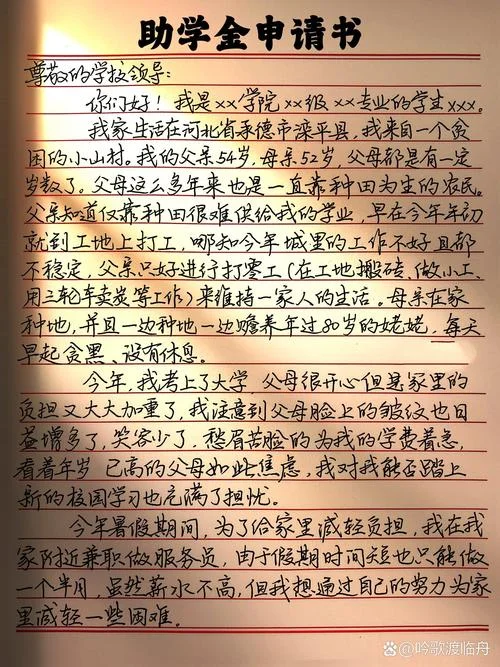 助学金申请书
尊敬的学校领导:
你们好!我是xx学院xx级xx专业的学生xxx。
我家生活在河北省承德市滦平县,我来自一个贫
困的小山村。我的父亲54岁,母亲52岁,父母都是有一定
岁数了。父母这么多年来也是一直靠种田为生的农民。
父亲知道仅靠种田很难供给我的学业,早在今年年初
就到工地上打工,哪知今年城里的工作不好且都
不稳定,父亲只好进行打零工(在工地搬砖、做小工、
用三轮车卖炭等工作)来维持一家人的生活。母亲在家
种地,并且一边种地一边赡养年过80岁的姥姥,每天
早起贪黑、没有休息。
今年,我考上了大学,父母很开心但是家里的
负担又大大加重了,我注意到父母脸上的皱纹也日
益增多了,笑容少了。愁眉苦脸的为我的学费着急,
看着年岁已高的父母如此焦虑,我对我能否踏上
新的校园学习也充满了担忧。
今年暑假期间,为了给家里减轻负担,我在我
家附近兼职做服务员,由于假期时间短也只能做
一个半月,虽然薪水不高,但我想通过自己的努力为家
里减轻一些困难。
吟歌渡临舟